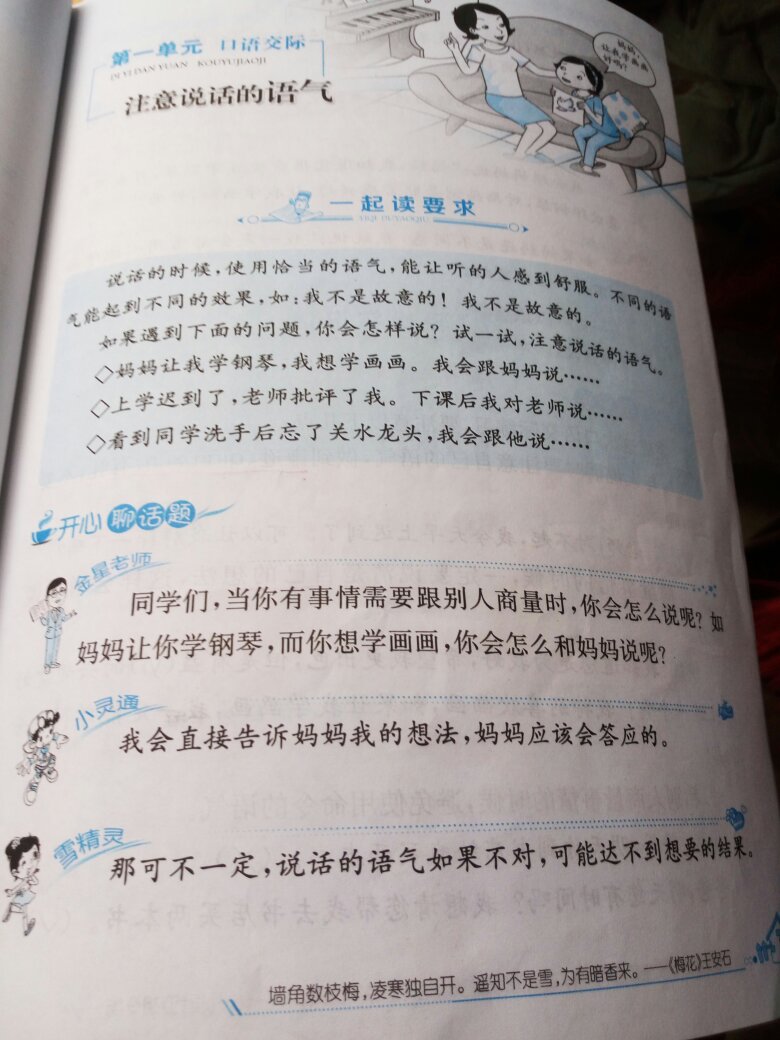 第一单元 口语交际
DI YI DAN YUAN KOUYUJIAOJI
注意说话的语气
妈妈，
让我学画画
好吗？
一起读要求
YIQI DUYAOQIU
说话的时候，使用恰当的语气，能让听的人感到舒服。不同的语
气能起到不同的效果，如：我不是故意的！我不是故意的。
如果遇到下面的问题，你会怎样说？试一试，注意说话的语气。
◇妈妈让我学钢琴，我想学画画。我会跟妈妈说……
◇上学迟到了，老师批评了我。下课后我对老师说……
◇看到同学洗手后忘了关水龙头，我会跟他说……
开心聊话题
金星老师
同学们，当你有事情需要跟别人商量时，你会怎么说呢？如
妈妈让你学钢琴，而你想学画画，你会怎么和妈妈说呢？
小灵通
我会直接告诉妈妈我的想法，妈妈应该会答应的。
雪精灵
那可不一定，说话的语气如果不对，可能达不到想要的结果。
墙角数枝梅，凌寒独自开。遥知不是雪，为有暗香来。——《梅花》王安石